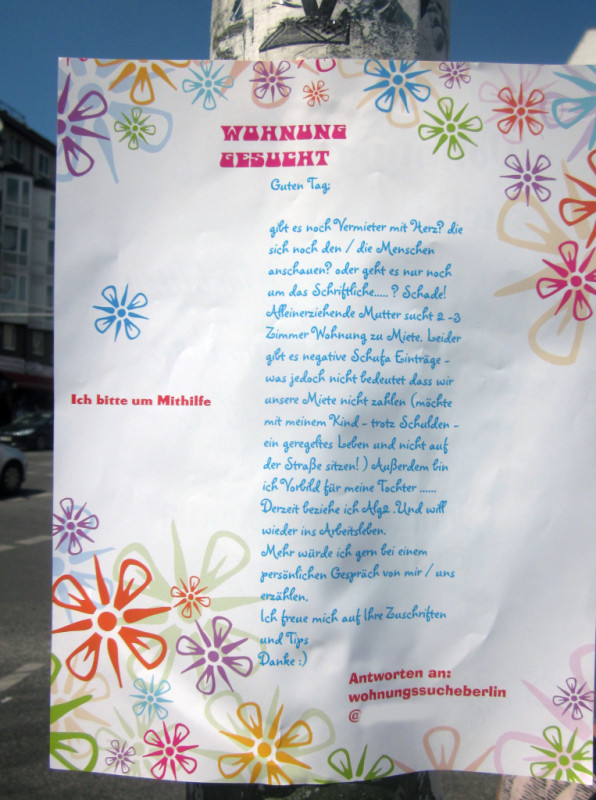 WOHNUNG
GESUCHT
Guten Tag;
gibt es noch Vermieter mit Herz? die
sich noch den / die Menschen
anschauen? oder geht es nur noch
um das Schriftliche..... ? Schade!
Alleinerziehende Mutter sucht 2 -3
Zimmer Wohnung zu Miete. Leider
gibt es negative Schufa Einträge -
was jedoch nicht bedeutet dass wir
unsere Miete nicht zahlen (möchte
mit meinem Kind - trotz Schulden -
ein geregeltes Leben und nicht auf
der Straße sitzen! ) Außerdem bin
ich Vorbild für meine Tochter ......
Derzeit beziehe ich Alg2 .Und will
wieder ins Arbeitsleben.
Mehr würde ich gern bei einem
persönlichen Gespräch von mir / uns
erzählen.
Ich freue mich auf Ihre Zuschriften
und Tips
Danke :)
Ich bitte um Mithilfe
Antworten an:
wohnungssucheberlin
@